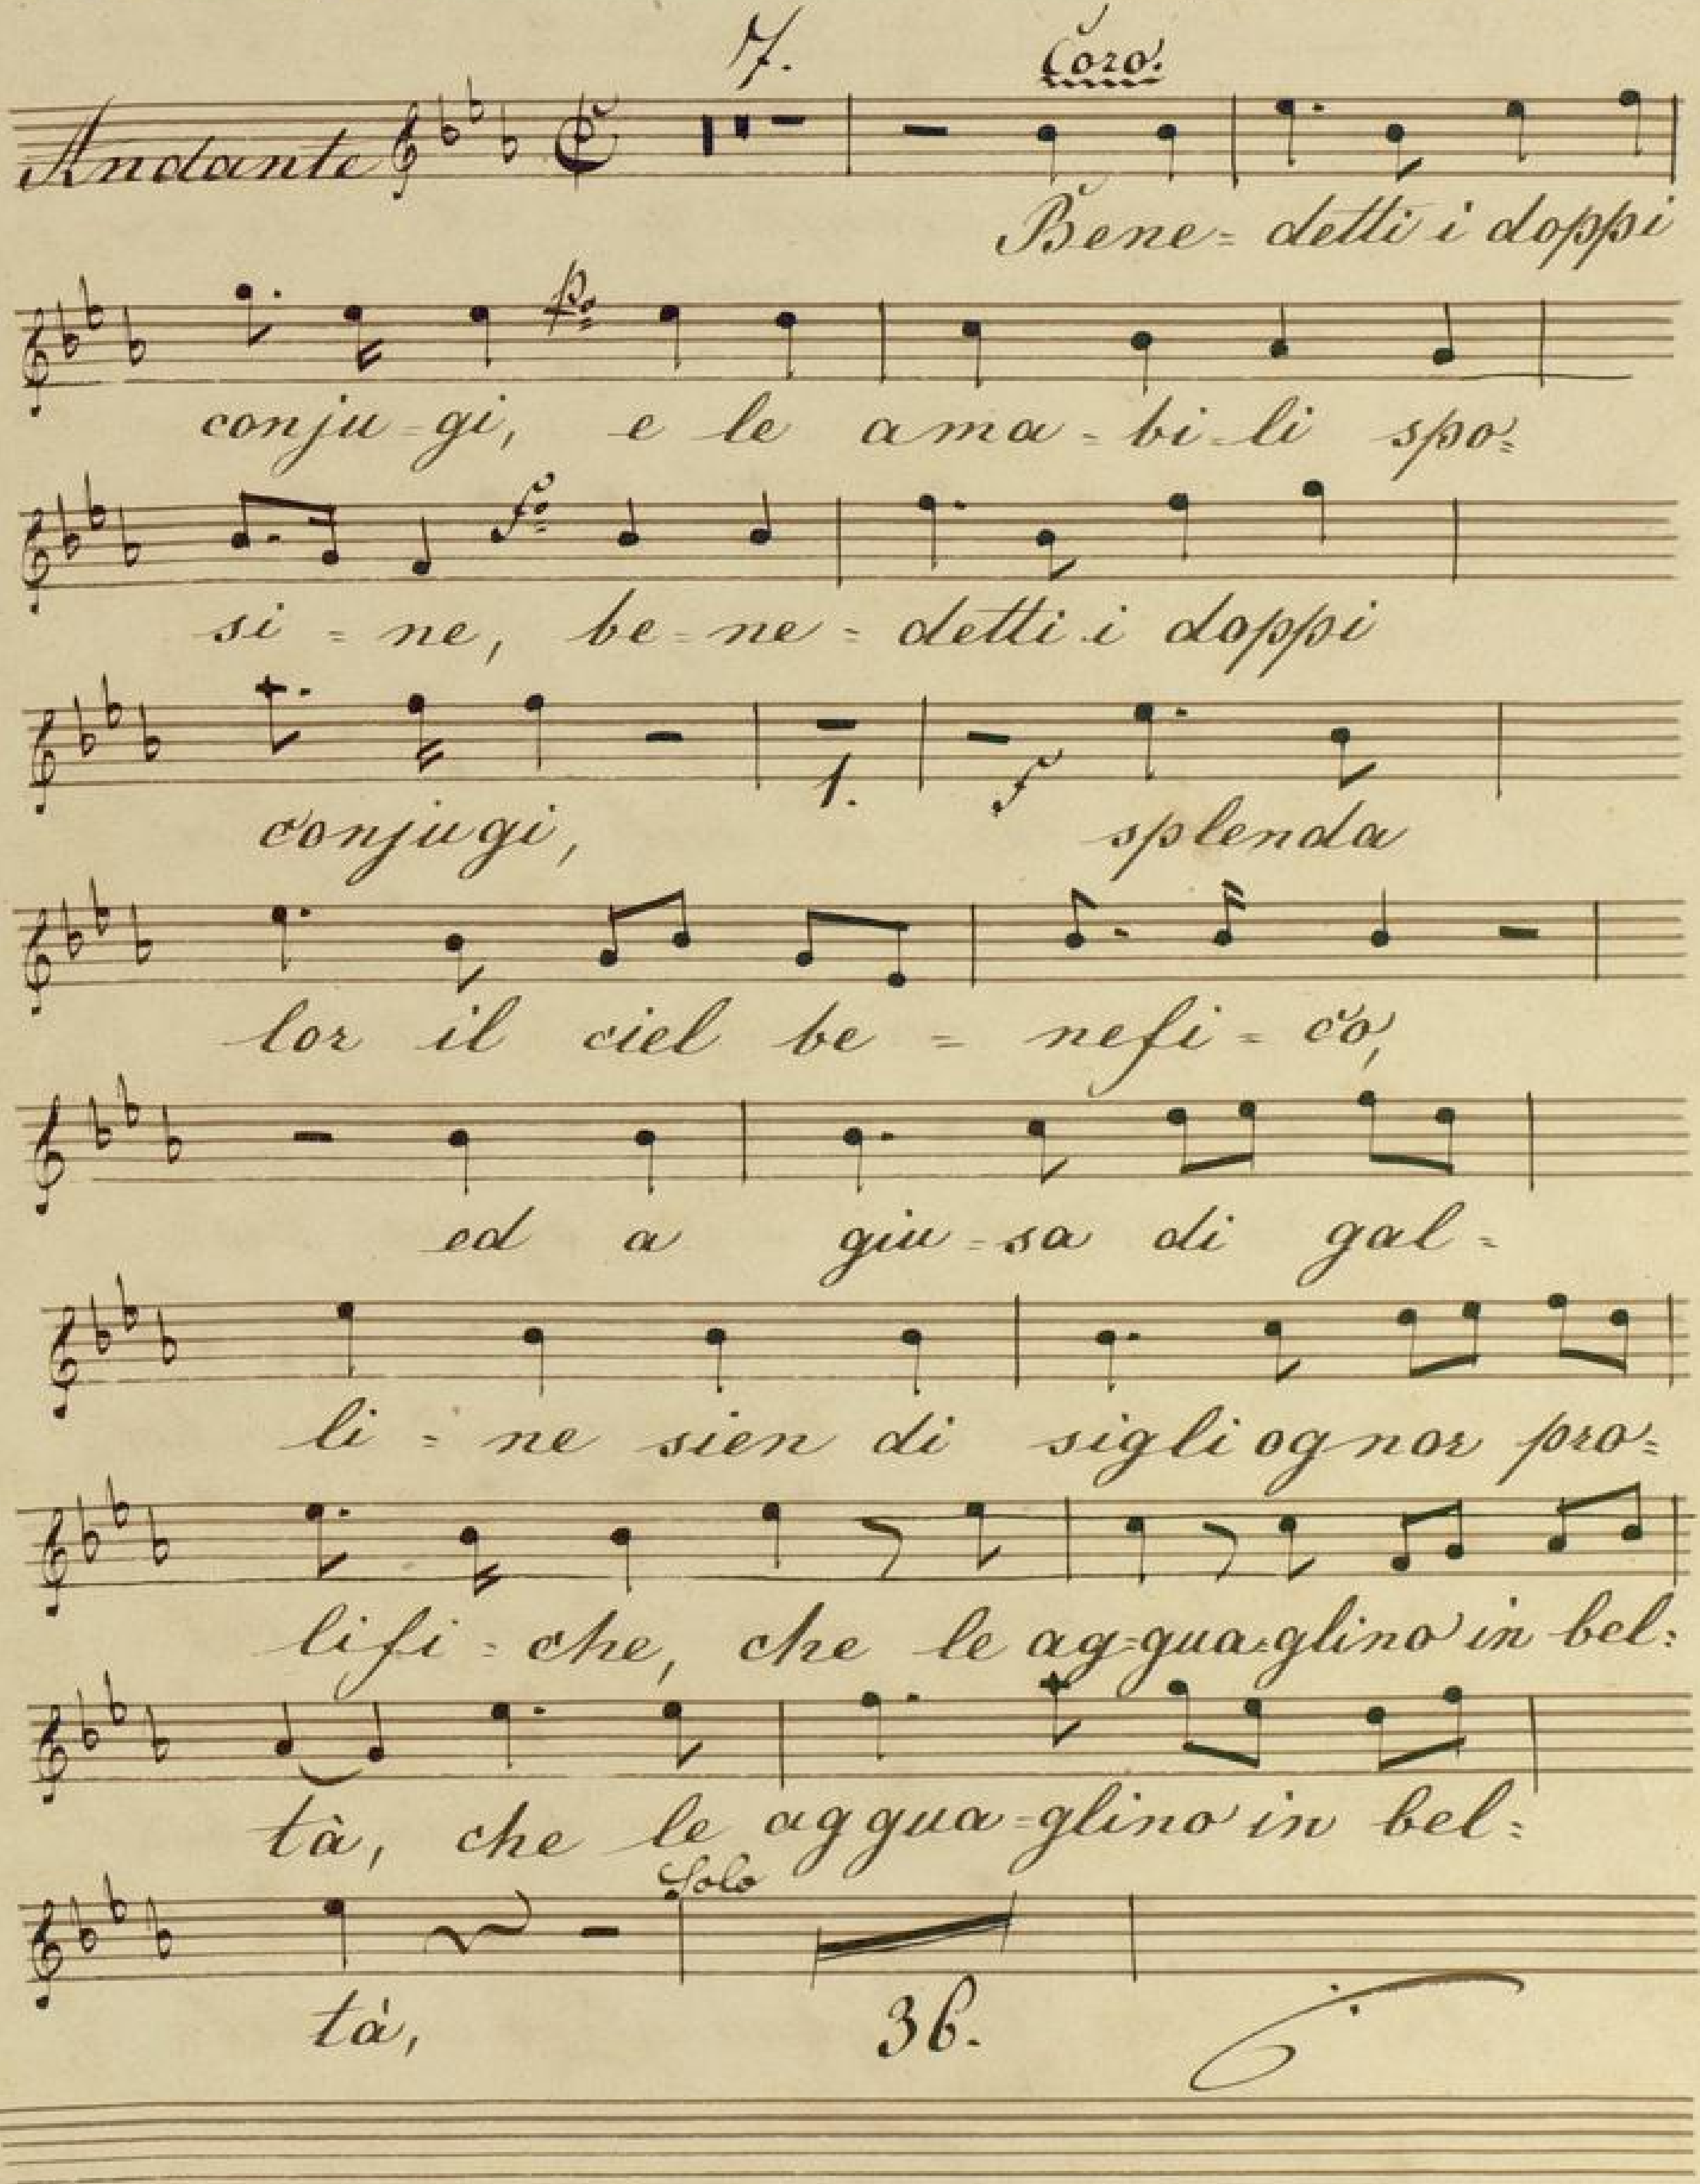 7. Coro.
Andante
Bene= detti i doppi
po
conju=gi, e le ama=bi=li spo=
fo
si=ne, be=ne=detti i doppi
1. f
conjugi, splenda
lor il ciel be=nefi=co,
ed a giu=sa di gal=
li=ne sien di sigli ognor pro=
lifi=che, che le ag=gua=glino in bel=
tà, che le aggua=glino in bel=
Solo
tà, 36.